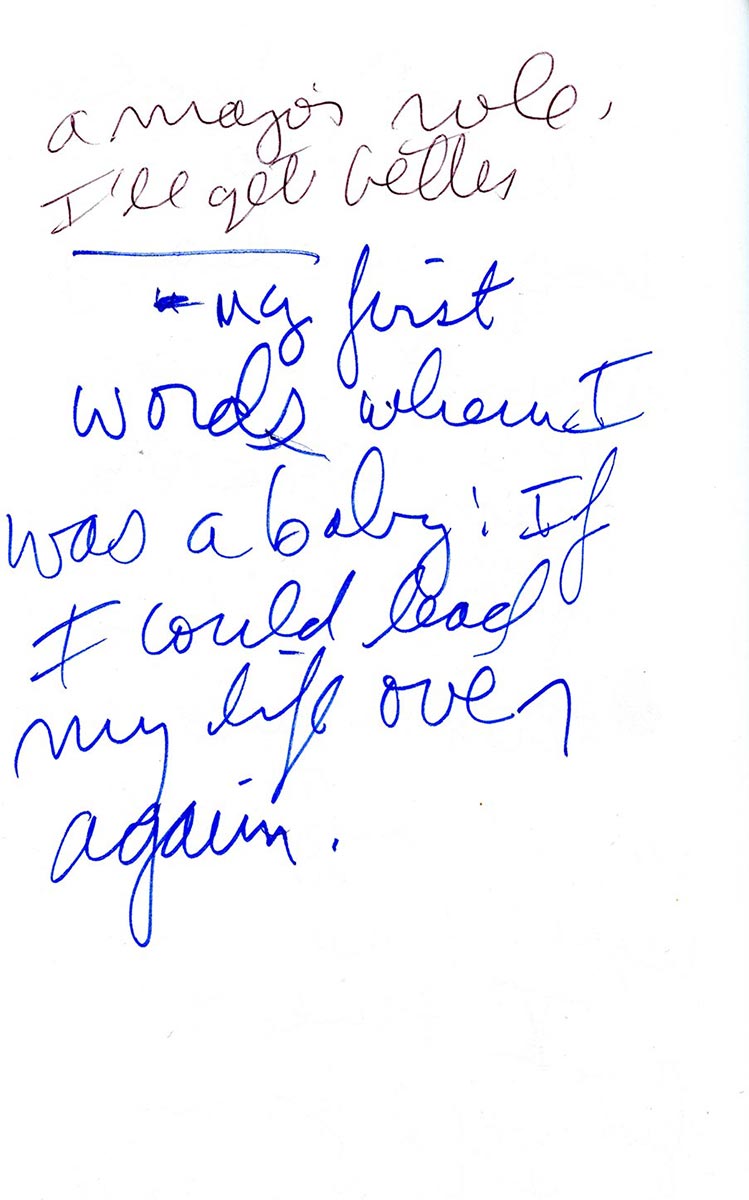 a major role.
I'll get better
- my first
words when I
was a baby: If
I could lead
my life over
again.